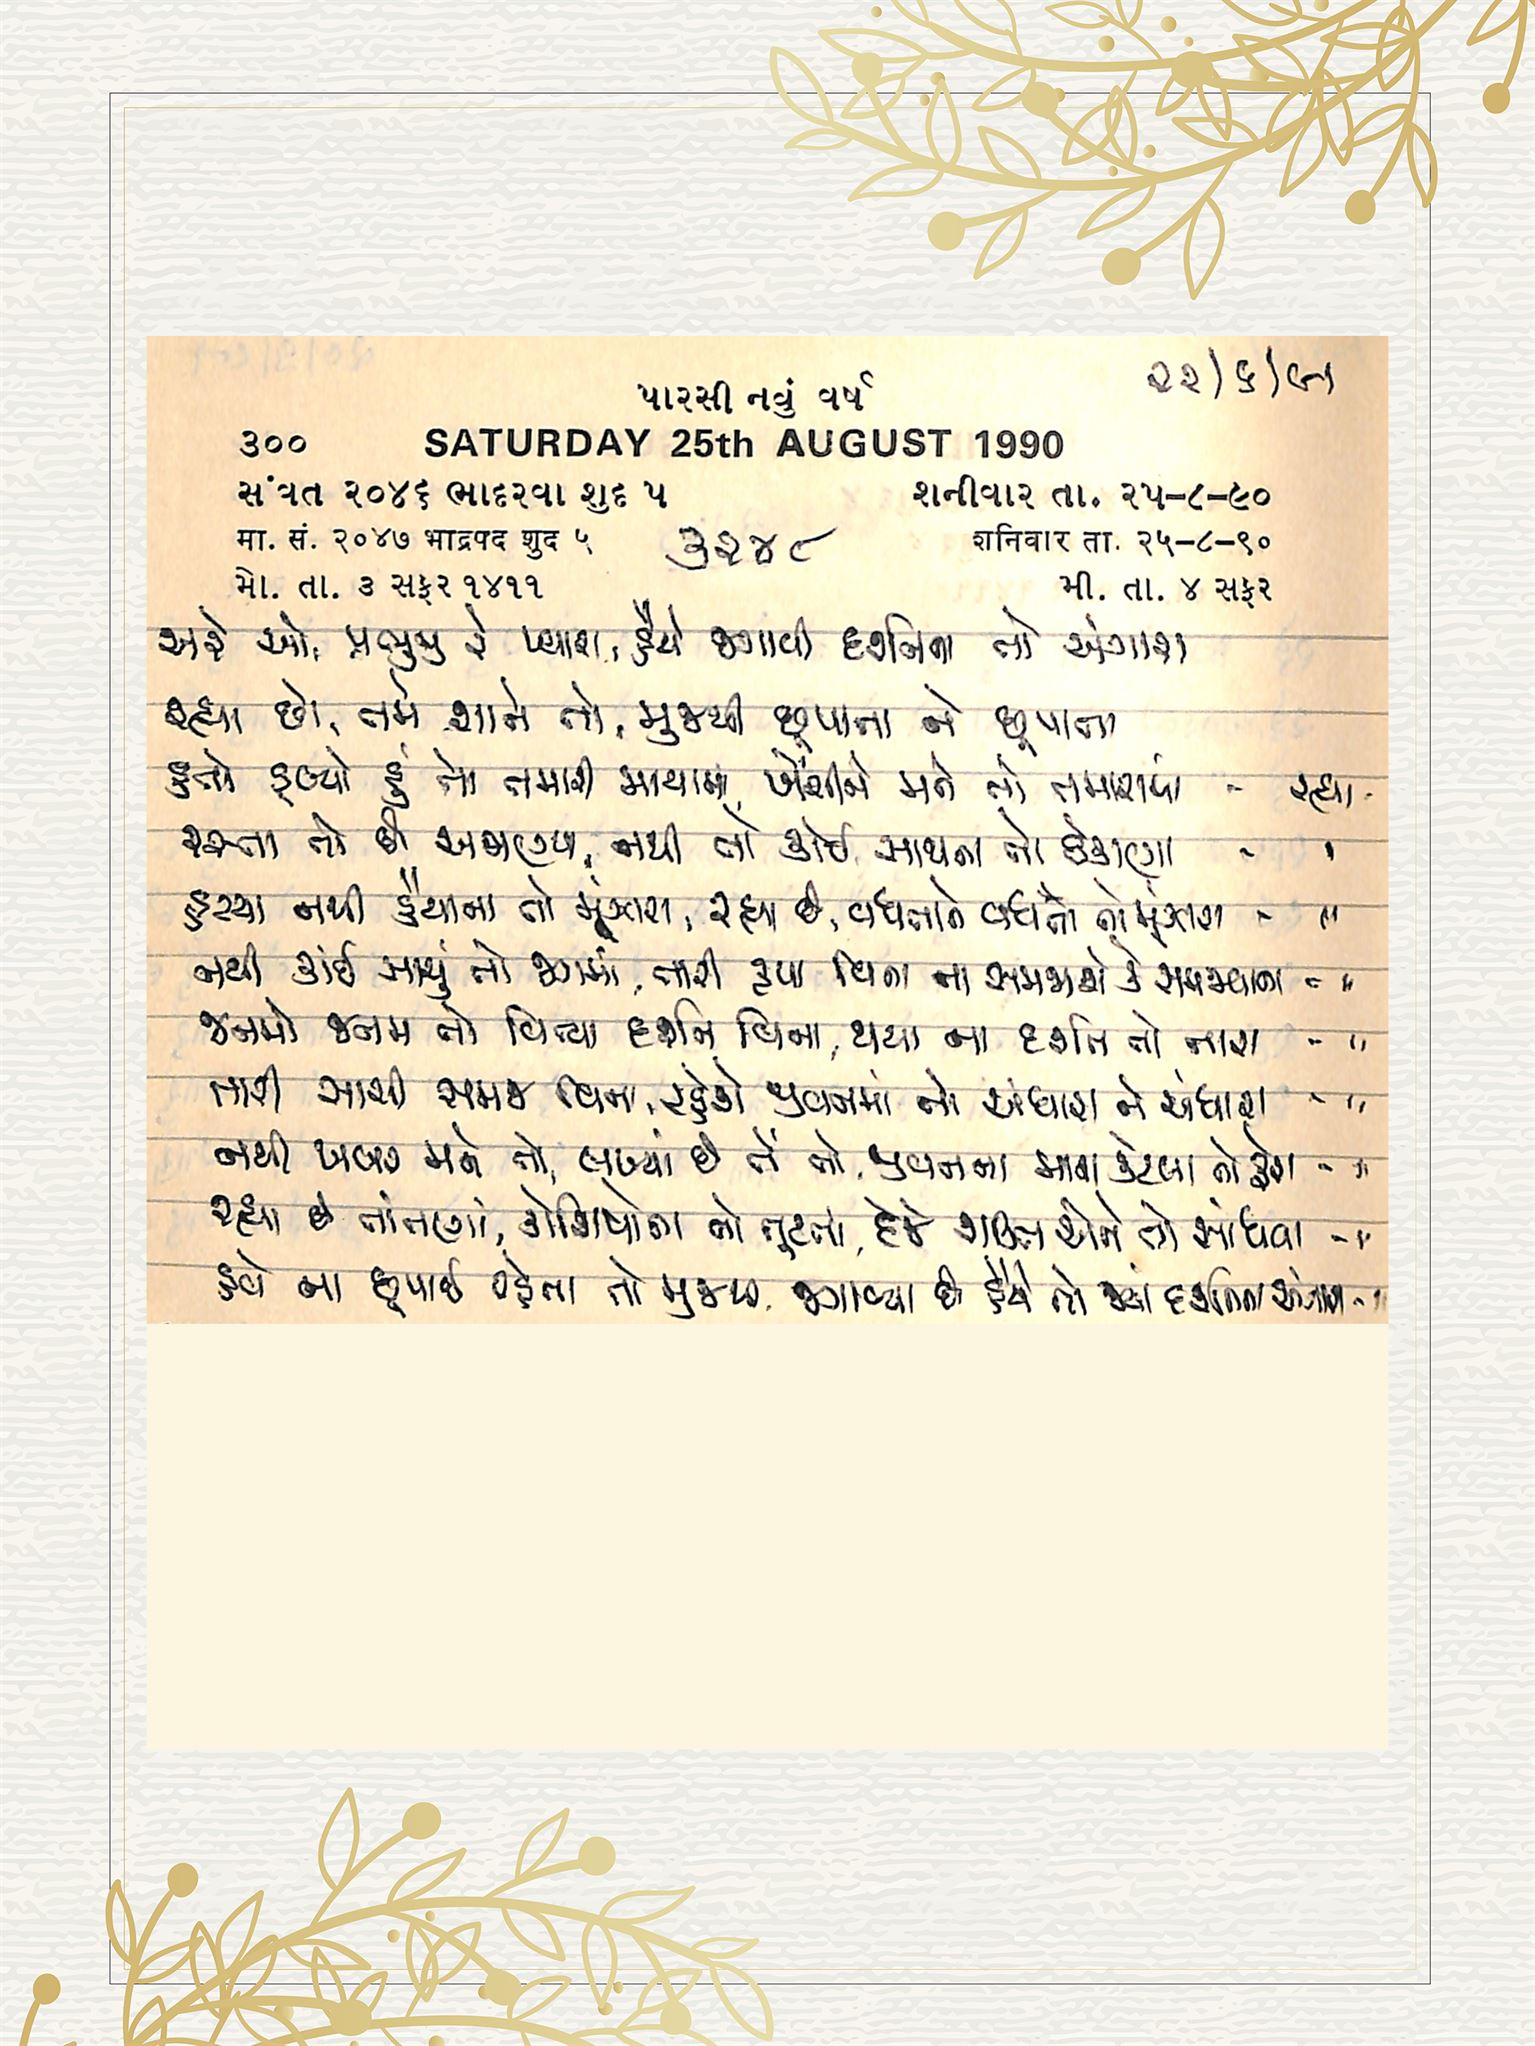 ૨૨)૬)૯૧
પારસી નવું વર્ષ
૩૦૦ SATURDAY 25th AUGUST 1990
સંવત ૨૦૪૬ ભાદરવા શુદ ૫ શનીવાર તા. ૨૫-૮-૯૦
मा. सं. २०४७ भाद्रपद शुद ५ ૩૨૪૮ शनिवार ता. २५-८-९०
મો. તા. ૩ સફર ૧૪૧૧ મી. તા. ૪ સફર
અરે ઓ, પ્રભુજી રે પ્યારા, હૈયે જગાવી દર્શનના તો અંગારા
રહ્યા છો, તમે શાને તો, મુજથી છૂપાતા ને છૂપાતા
હતો ડૂબ્યો હું તો તમારી માયામાં, ખેંચીને મને તો તમારામાં - રહ્યા -
રસ્તા તો છે અજાણ્યા, નથી તો કોઈ સાથના તો ઠેકાણા - "
હટયા નથી હૈયાના તો મૂંઝારા, રહ્યા છે, વધતાને વધતા તો મૂંઝારા - "
નથી કાંઈ સાચું તો જગમાં, તારી કૃપા વિના ના સમજાશે કે સમજવાના - "
જનમો જનમ તો વિત્યા દર્શન વિના, થયા ના દર્શન તો તારા - "
તારી સાચી સમજ વિના, રહેશે જીવનમાં તો અંધારા ને અંધારા - "
નથી ખબર મને તો, લખ્યાં છે તેં તો, જીવનના મારા કેટલા તો ફેરા - "
રહ્યા છે તાંતણાં, કોશિષોના તો તૂટતા, દેજે શક્તિ એને તો સાંધવા - "
હવે ના છૂપાઈ રહેતા તો મુજથી, જગાવ્યા છે હૈયે તો જ્યાં દર્શનના અંગારા - "